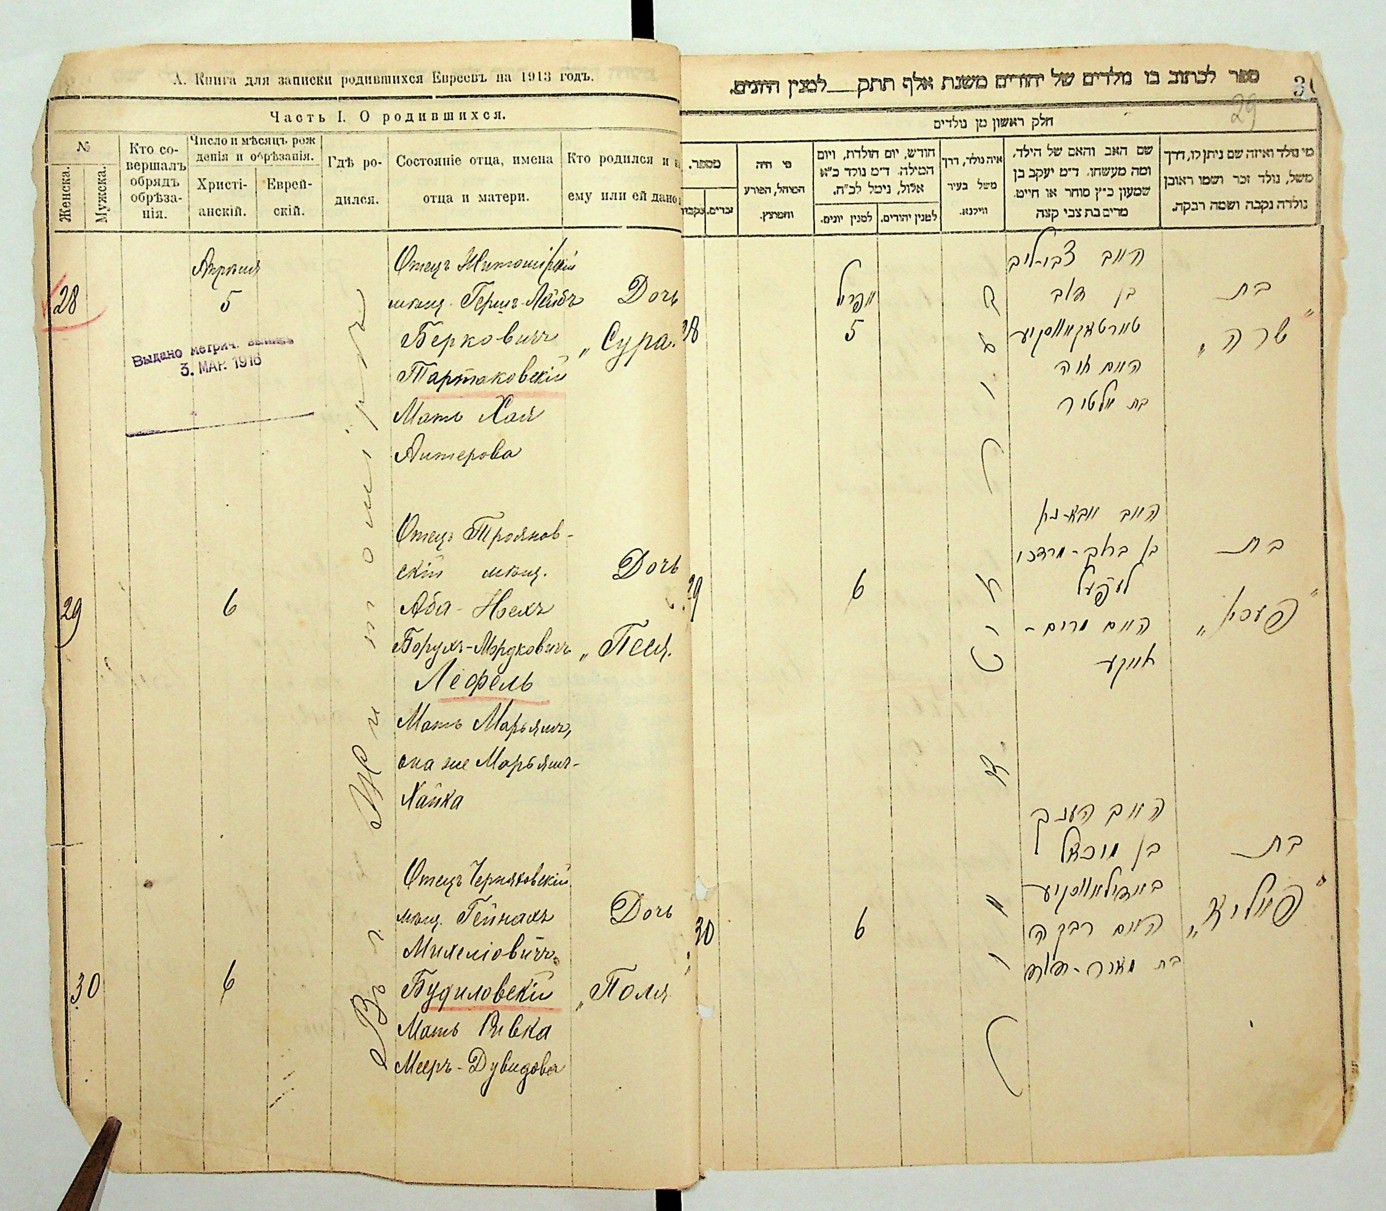 А. Книга для записки родившихся Евреевъ на 1913 годъ.
Часть I. О родившихся.
№
Женска.
Мужска.
Кто со-
вершалъ
обрядъ
обрѣза-
нія.
Число и мѣсяцъ рож
денія и обрѣзанія.
Христі-
анскій.
Еврей-
скій.
Гдѣ ро-
дился.
Состояніе отца, имена
отца и матери.
Кто родился и
ему или ей дано
Въ г. Житомірѣ
28
Апрѣля
5
Выдано метрич. выпись
3. МАР. 1916
Отецъ Житомірскій
мѣщ. Гершъ-Лейбъ
Берковичъ
Тартаковскій
Мать Хая
Алтерова
Дочь
„Сура.
29
6
Отецъ Трояновъ-
скій мѣщ.
Аба-Нехъ
Борухъ-Мордковичъ
Лефель
Мать Марьямъ,
она же Марьямъ-
Хайка
Дочь
„Песя.
30
6
Отецъ Черняховскій
мѣщ. Гейнахъ
Михелiовичъ
Будиловскій
Мать Ривка
Мееръ-Дувидова
Дочь
„Поля
ספר לכתוב בו נולדים של יהודים משנת אלף תתק__למנין היונים.
29
חלק ראשון מן נולדים
מי נולד ואיזה שם ניתן לו, דרך
משל, נולד זכר ושמו ראובן
נולדה נקבה ושמה רבקה.
שם האב והאם של הילד,
ומה מעשהו. ד״מ יעקב בן
שמעון כ״ץ סוחר או חייט.
מרים בת צבי קצה
איה נולד, דרך
משל בעיר
ווילנא.
חודש, יום חולדת, ויום
המילה. ד״מ נולד כ״א
אלול, נימל לכ״ח.
למנין יהודים.
למנין יונים.
מי היה
המוהל, הפורע
והמוצץ.
מספר.
זכרים.
נקבות
בת
„שרה״
האב צבי-ליב
בן דוב
טארטאקאווסקיע
האם חיה
בת אלטיר
אפריל
5
28
בת
„פעסא״
האב אבא-נח
בן ברוך-מרדכי
לעפעל
האם מרים-
חייקע
6
29
בת
„פאליא״
האב העניך
בן מיכאל
בודילאווסקיע
האם רבקה
בת מאיר-דוד
6
30